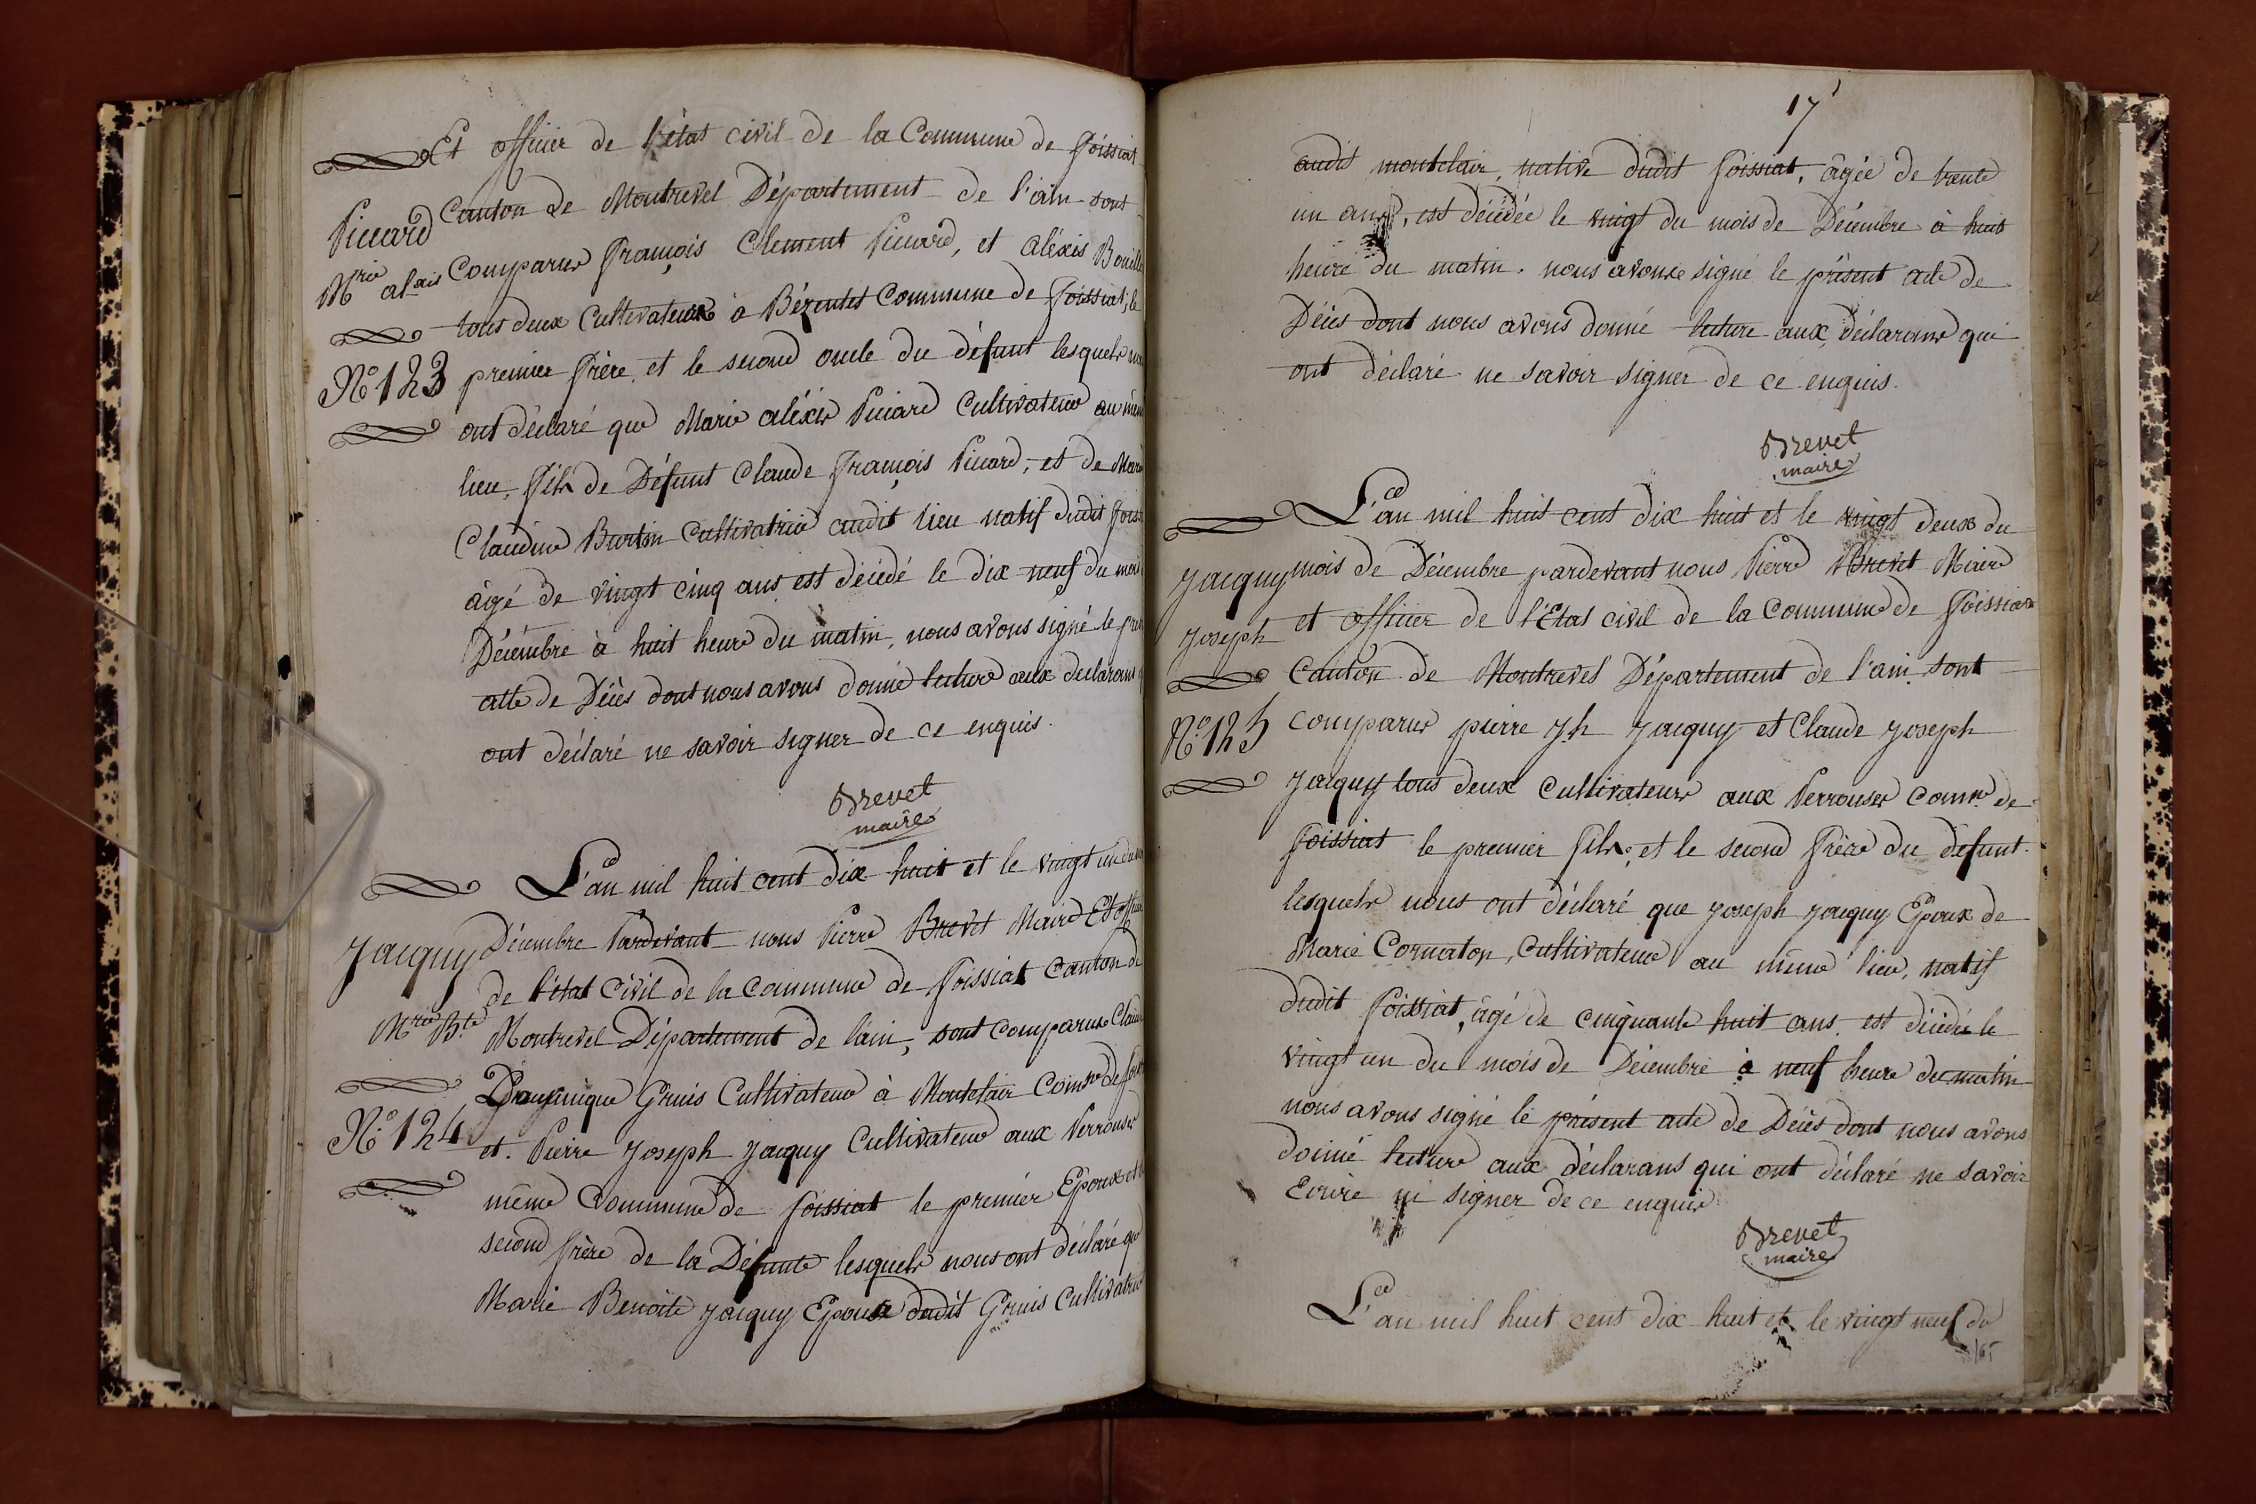 Et officier de l'état civil de la Commune de foissiat
Piccard
Canton de Montrevel Département de l'ain sont
Mrie alexis
Comparus françois Clement Piccard, et aléxis Bouill
tous deux Cultivateurs à Bézentet Commune de foissiat, le
N° 123
premier frère et le second oncle du défunt lesquels
ont déclaré que Marie aléxis Piccard Cultivateur au
lieu, fils de Défunt Claude françois Piccard, et de Marie
Claudine Burtin Cultivatrice audit lieu natif dudit foiss
âgé de vingt cinq ans est décédé le dix neuf du mois
Décembre à huit heure du matin, nous avons signé le
acte de Décès dont nous avons donné lecture aux declarans
ont déclaré ne savoir signer de ce enquis.
Brevet
maire
L'an mil huit cent dix huit et le vingt un
Jacquy
Décembre Pardevant nous Pierre Brevet Maire Et
de l'état Civil de la Commune de foissiat Canton de
Mrie Bte
Montrevel Département de l'ain, sont comparus Claude
Dominique Gruis Cultivateur à Montclair Comne de
N° 124
et Pierre Joseph Jacquy Cultivateur aux Perrouses
même Commune de foissiat le premier Epoux et
second frère de la Défunte lesquels nous ont déclaré que
Marie Benoite Jacquy Epouse dudit Gruis Cultivatrice
17
audit montclair, native dudit foissiat, âgée de trente
un ans, est décédée le vingt du mois de Décembre à huit
heure du matin. nous avons signé le présent acte de
Décès dont nous avons donné lecture aux déclarans qui
ont déclaré ne savoir signer de ce enquis.
Brevet
maire
L'an mil huit cent dix huit et le vingt deux du
Jacquy
mois de Décembre pardevant nous Pierre Brevet Maire
Joseph
et officier de l'Etat civil de la Commune de foissiat
Canton de Montrevel Département de l'ain sont
N° 125
comparus pierre Jh Jacquy et Claude Joseph
Jacquy tous deux Cultivateurs aux Perrouses comne de
foissiat le premier fils, et le second frère du défunt.
lesquels nous ont déclaré que Joseph Jacquy Epoux de
Marie Cornaton, Cultivateur au même lieu, natif
dudit foissiat, âgé de cinquante huit ans est décédé le
vingt un du mois de Décembre à neuf heure du matin
nous avons signé le présent acte de Décès dont nous avons
donné lecture aux déclarans qui ont déclaré ne savoir
Ecrire ni signer de ce enquis
Brevet
maire
L'an mil huit cent dix huit et le vingt neuf du